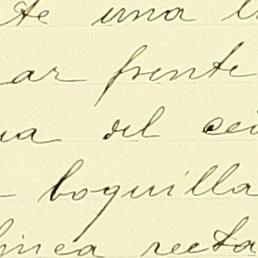 te una
ar frente
ua del
boquilla
linea recta